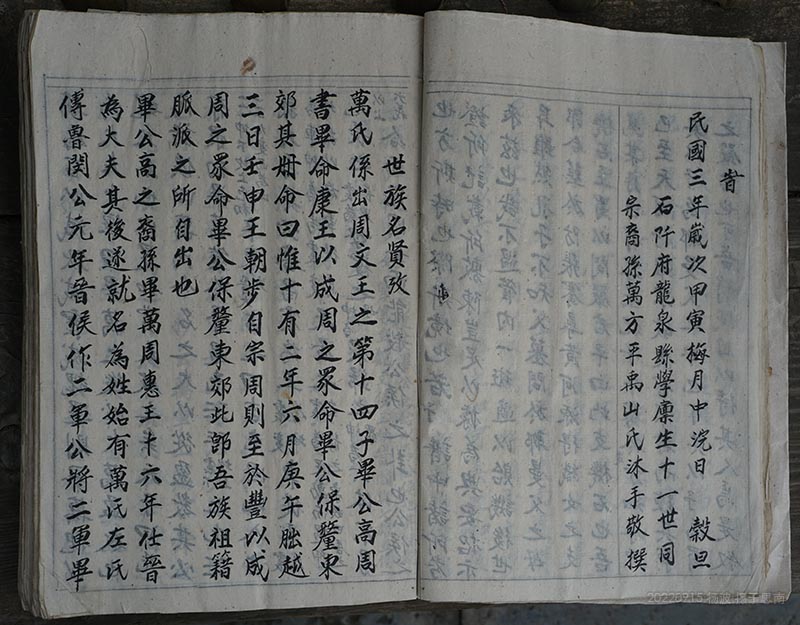 旹
民國三年歲次甲寅梅月中浣日 穀旦
石阡府龍泉縣學廩生十一世同
宗裔孫萬方平禹山氏沐手敬撰
世族名賢攷
萬氏係出周文王之第十四子畢公高周
書畢命康王以成周之眾命畢公保釐東
郊其冊命曰惟十有二年六月庚午朏越
三日壬申王朝步自宗周則至於豐以成
周之眾命畢公保釐東郊此郎吾族祖籍
脈派之所自出也
畢公高之裔孫畢萬周惠王十六年仕晉
為大夫其後遂就名為姓始有萬氏左氏
傳魯閔公元年晉侯作二軍公將二軍畢
20220215 杨波 摄于思南